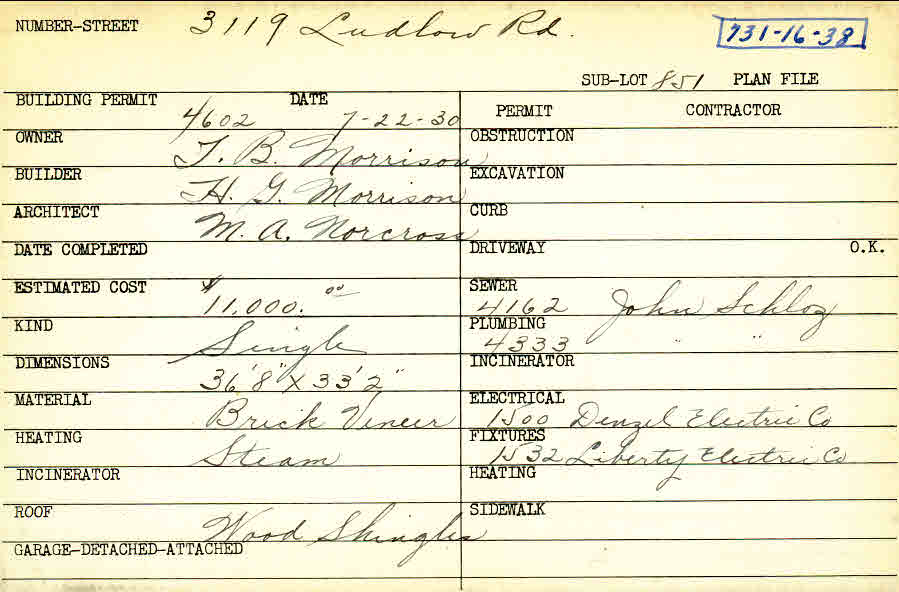 NUMBER-STREET 3119 Ludlow Rd. 731-16-38
SUB-LOT 851 PLAN FILE
BUILDING PERMIT DATE
4602 7-22-30
PERMIT CONTRACTOR
OWNER T. B. Morrison
OBSTRUCTION
BUILDER H. G. Morrison
EXCAVATION
ARCHITECT M. A. Norcross
CURB
DATE COMPLETED
DRIVEWAY O.K.
ESTIMATED COST $11,000.00
SEWER 4162 John Schloz
KIND Single
PLUMBING 4333 " "
DIMENSIONS 36'8" X 33'2"
INCINERATOR
MATERIAL Brick Veneer
ELECTRICAL 1500 Denzel Electric Co
HEATING Steam
FIXTURES 1532 Liberty Electric Co
INCINERATOR
HEATING
ROOF Wood Shingles
SIDEWALK
GARAGE-DETACHED-ATTACHED